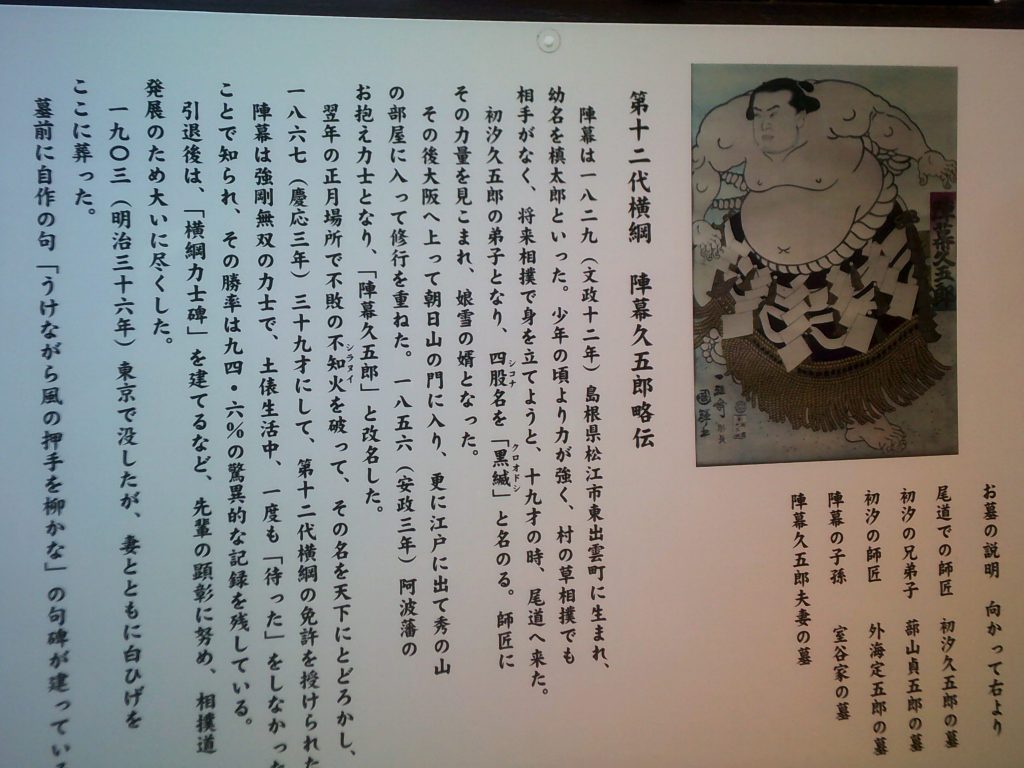 お墓の説明　向かって右より
尾道での師匠　初汐久五郎の墓
初汐の兄弟子　薜山貞五郎の墓
初汐の師匠　外海定五郎の墓
陣幕の子孫　室谷家の墓
陣幕久五郎夫妻の墓
陣幕久五郎
國輝画
第十二代横綱　陣幕久五郎略伝
陣幕は一八二九（文政十二年）島根県松江市東出雲町に生まれ、
幼名を槙太郎といった。少年の頃より力が強く、村の草相撲でも
相手がなく、将来相撲で身を立てようと、十九才の時、尾道へ来た。
初汐久五郎の弟子となり、四股名を「黒縅」と名のる。師匠に
シコナ
クロオドシ
その力量を見こまれ、娘雪の婿となった。
その後大阪へ上って朝日山の門に入り、更に江戸に出て秀の山
の部屋に入って修行を重ねた。一八五六（安政三年）阿波藩の
お抱え力士となり、「陣幕久五郎」と改名した。
翌年の正月場所で不敗の不知火を破って、その名を天下にとどろかし、
シラヌイ
一八六七（慶応三年）三十九才にして、第十二代横綱の免許を授けられた
陣幕は強剛無双の力士で、土俵生活中、一度も「待った」をしなかった
ことで知られ、その勝率は九四・六％の驚異的な記録を残している。
引退後は、「横綱力士碑」を建てるなど、先輩の顕彰に努め、相撲道
発展のため大いに尽くした。
一九〇三（明治三十六年）東京で没したが、妻とともに白ひげを
ここに葬った。
墓前に自作の句「うけながら風の押手を柳かな」の句碑が建ってい